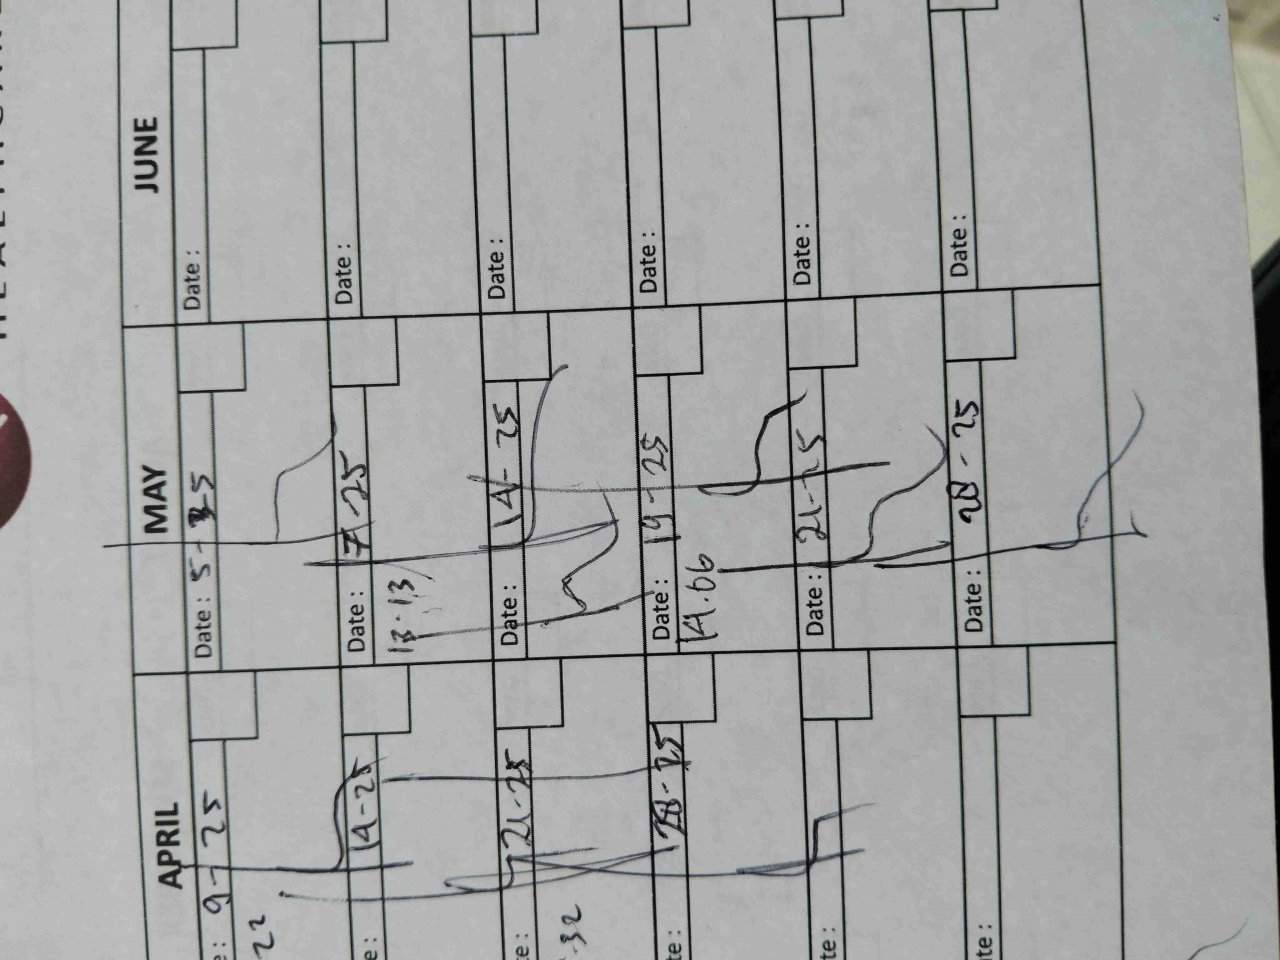 APRIL
MAY
JUNE
9-25
Date: 5-3-5
Date:
22
14-25
Date: 7-25
Date:
13.13
21-25
Date: 14-25
Date:
.32
28-25
Date: 19-25
Date:
14.06
Date: 21-25
Date:
Date: 28-25
Date: